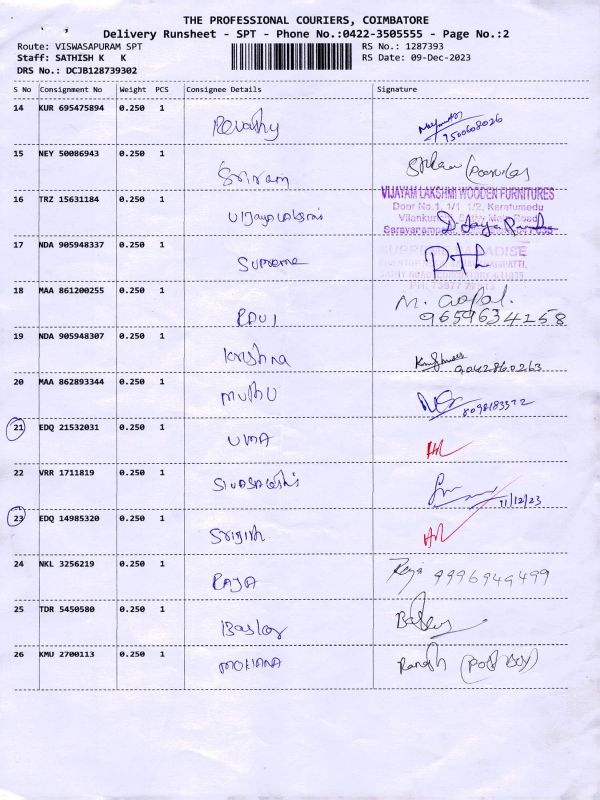 THE PROFESSIONAL COURIERS, COIMBATORE
Delivery Runsheet - SPT - Phone No.:0422-3505555 - Page No.:2
Route: VISWASAPURAM SPT RS No.: 1287393
Staff: SATHISH K K RS Date: 09-Dec-2023
DRS No.: DCJB128739302
S No Consignment No Weight PCS Consignee Details Signature
14 KUR 695475894 0.250 1 Revathy
9500608026
15 NEY 50086943 0.250 1 Sriram
16 TRZ 15631184 0.250 1 Vijayalakshmi
VIJAYAM LAKSHMI WOODEN FURNITURES
Door No.1, 1/1 1/2, Karatumedu
17 NDA 905948337 0.250 1 Supreme
18 MAA 861200255 0.250 1 RAVI M. Gopal.
9659634258
19 NDA 905948307 0.250 1 Krishna
9042860263
20 MAA 862893344 0.250 1 MUTHU
8098183372
21 EDQ 21532031 0.250 1 UMA
22 VRR 1711819 0.250 1
11/12/23
23 EDQ 14985320 0.250 1
24 NKL 3256219 0.250 1 RAJA Raja 9996949499
25 TDR 5450580 0.250 1 Baskar
26 KMU 2700113 0.250 1 MOHANA (Post Boy)